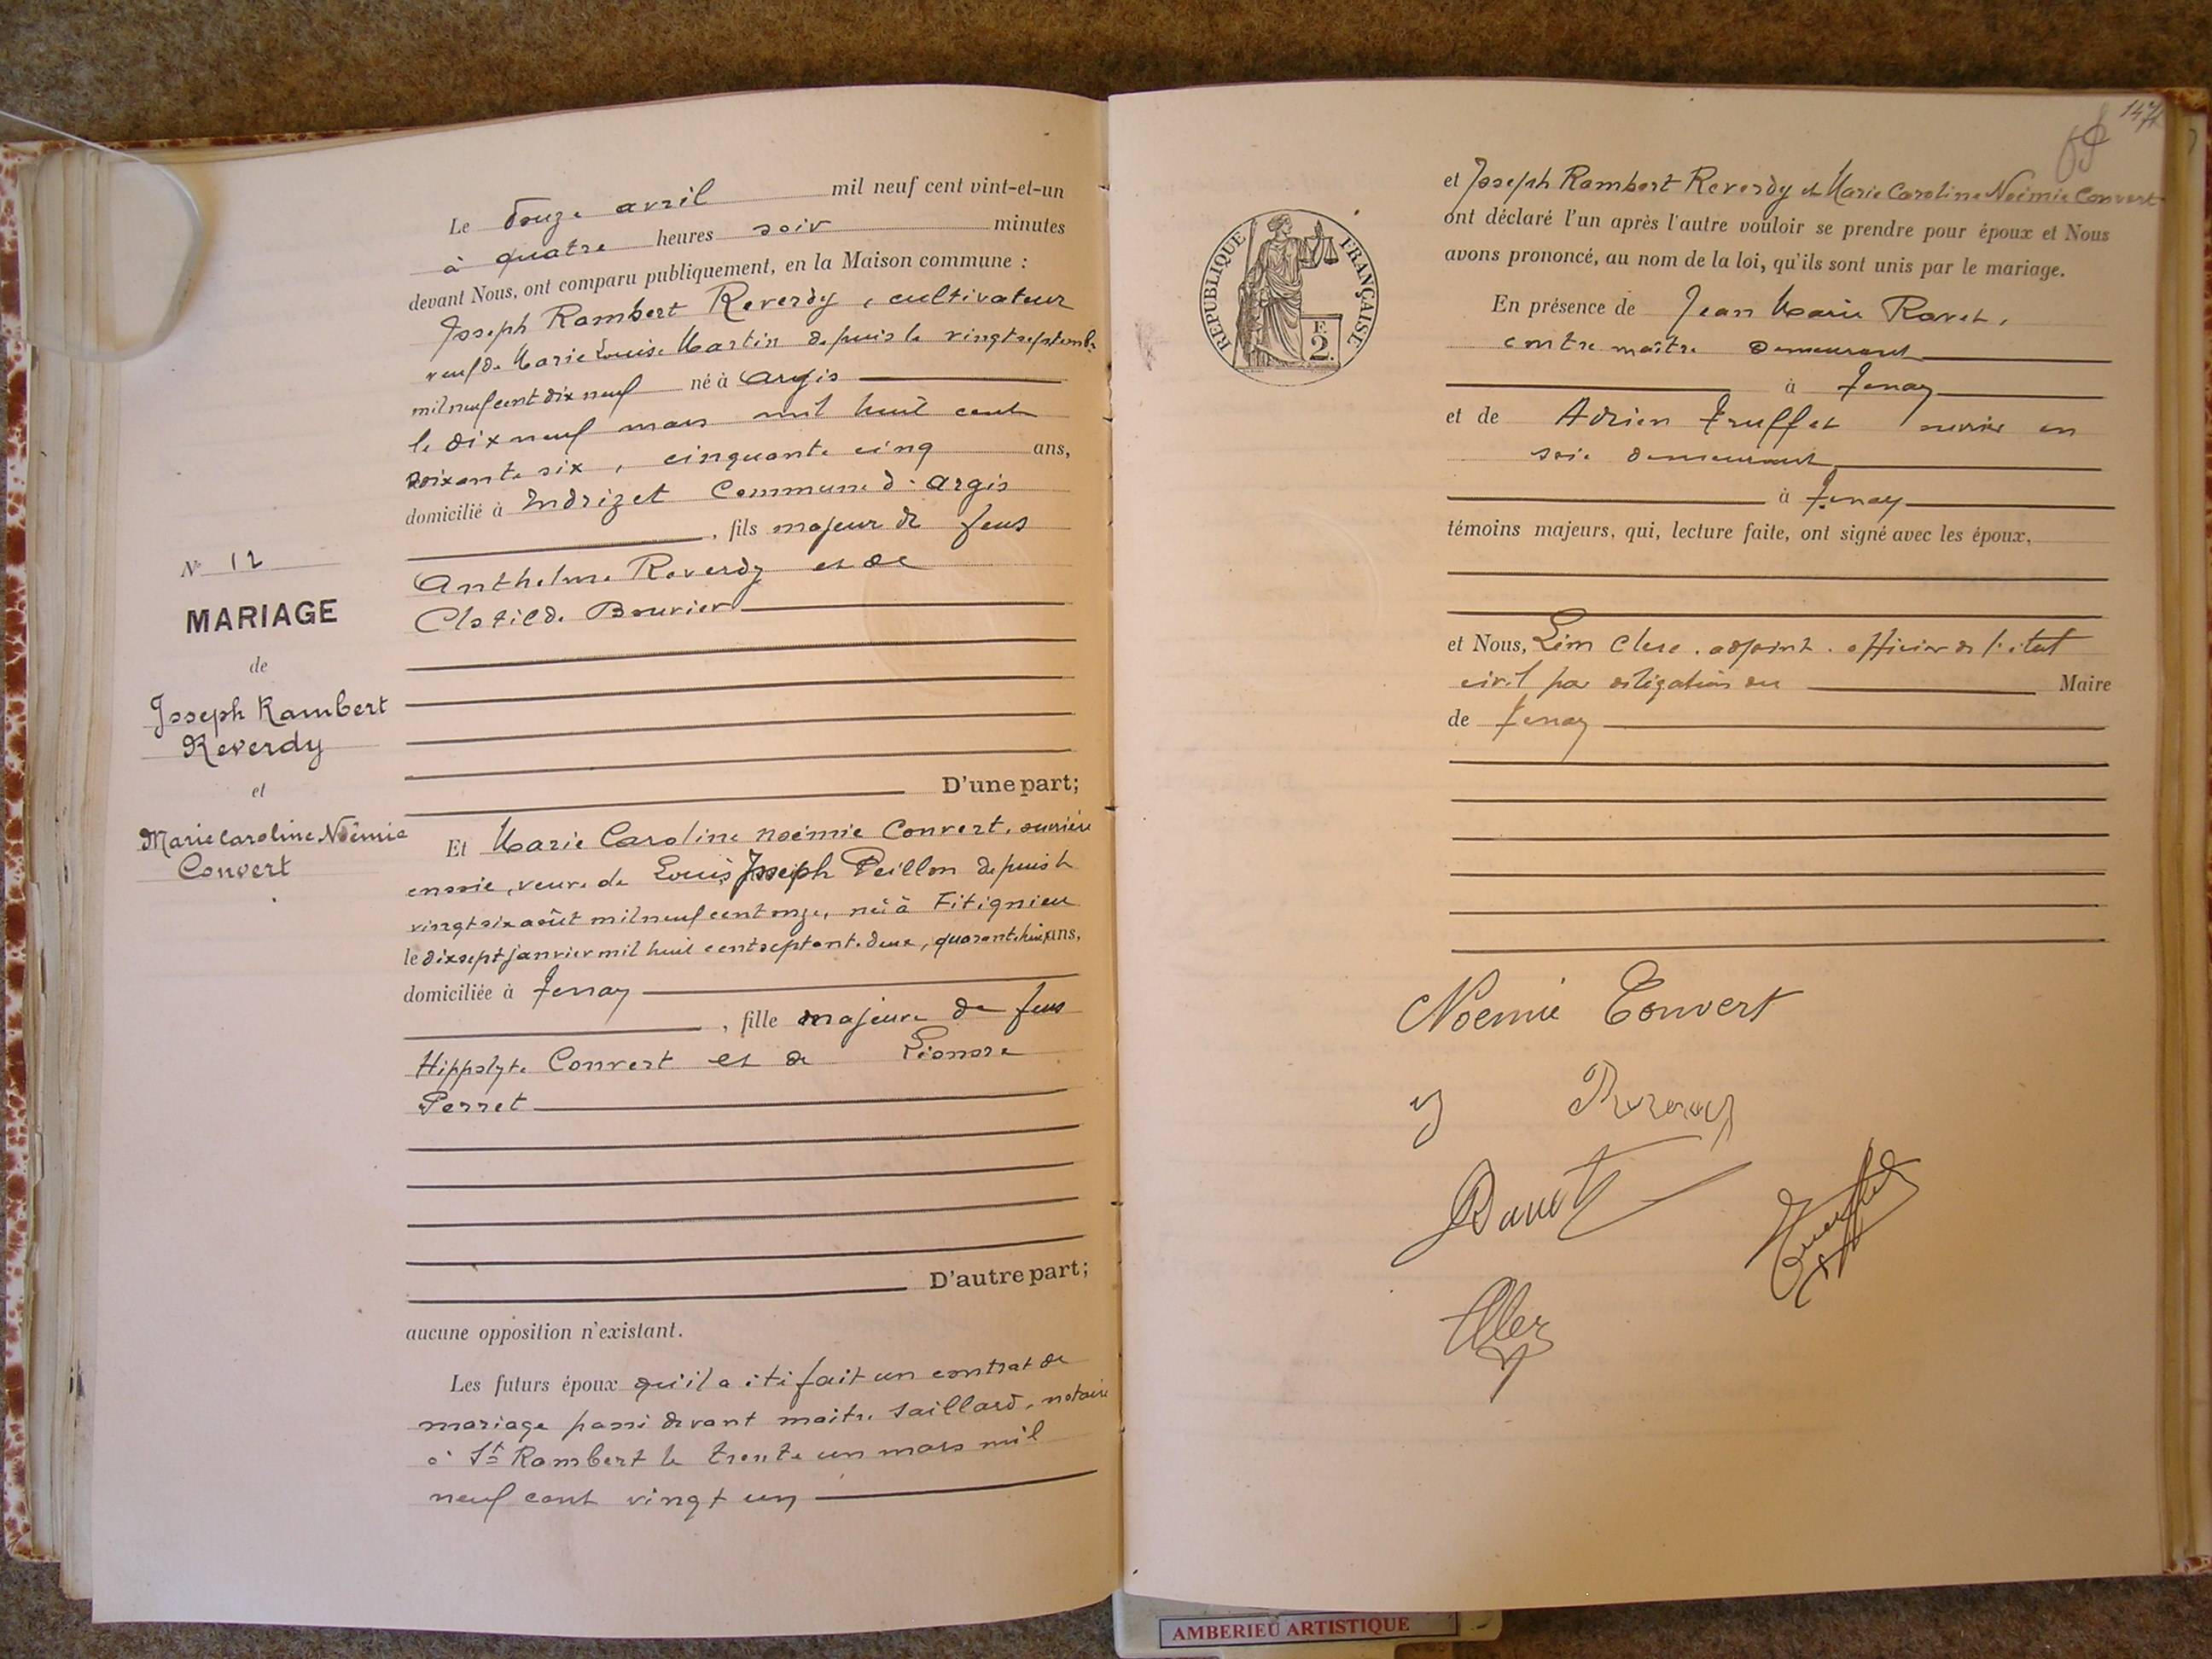 N° 12
MARIAGE
de
Joseph Rambert
Reverdy
et
Marie Caroline Noëmie
Convert
Le Douze avril mil neuf cent vint-et-un
à quatre heures soir minutes
devant Nous, ont comparu publiquement, en la Maison commune :
Joseph Rambert Reverdy, cultivateur
veuf de Marie Louise Martin depuis le vingt septembre
mil neuf cent dix neuf né à Argis
le dix neuf mars mil huit cent
soixante six, cinquante cinq ans,
domicilié à Indrizet Commune d'Argis
, fils majeur de feus
Anthelme Reverdy et de
Clotilde Bouvier
D'une part;
Et Marie Caroline Noémie Convert, ouvrière
en soie, veuve de Louis Joseph Peillon depuis le
vingt six août mil neuf cent onze, née à Fitignieu
le dix sept janvier mil huit cent septante deux, quarante huit ans,
domiciliée à Tenay
, fille majeure de feus
Hippolyte Convert et de Léonore
Perret
D'autre part;
aucune opposition n'existant.
Les futurs époux qu'il a été fait un contrat de
mariage passé devant maitre Saillard, notaire
à St Rambert le trente un mars mil
neuf cent vingt un
147
REPUBLIQUE FRANÇAISE
F.
2.
et Joseph Rambert Reverdy et Marie Caroline Noémie Convert
ont déclaré l'un après l'autre vouloir se prendre pour époux et Nous
avons prononcé, au nom de la loi, qu'ils sont unis par le mariage.
En présence de Jean Marie Ravet,
contre maître demeurant
à Tenay
et de Adrien Truffet ouvrier en
soie demeurant
à Tenay
témoins majeurs, qui, lecture faite, ont signé avec les époux,
et Nous, Léon Clerc, adjoint, officier de l'état
civil par délégation du Maire
de Tenay
Noemie Convert
J Reverdy
Ravet
Truffet
AMBERIEU ARTISTIQUE